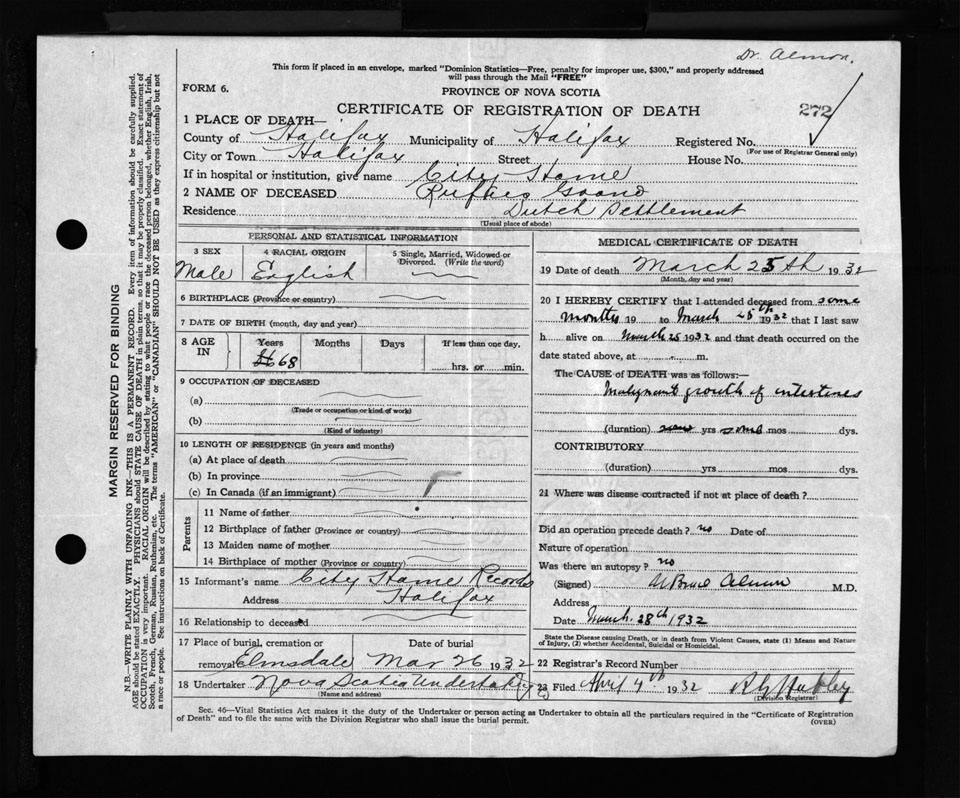 Dr. Almon.
This form if placed in an envelope, marked "Dominion Statistics—Free, penalty for improper use, $300," and properly addressed
will pass through the Mail "FREE"
FORM 6.
PROVINCE OF NOVA SCOTIA
CERTIFICATE OF REGISTRATION OF DEATH
272
1 PLACE OF DEATH—
County of Halifax Municipality of Halifax Registered No.
(For use of Registrar General only)
City or Town Halifax Street House No.
If in hospital or institution, give name City Home
2 NAME OF DECEASED Rufus
Residence Dutch Settlement
(Usual place of abode)
PERSONAL AND STATISTICAL INFORMATION
3 SEX 4 RACIAL ORIGIN 5 Single, Married, Widowed or
Divorced. (Write the word)
Male English
6 BIRTHPLACE (Province or country)
7 DATE OF BIRTH (month, day and year)
8 AGE IN Years Months Days If less than one day,
68 hrs. or min.
9 OCCUPATION OF DECEASED
(a)
(Trade or occupation or kind of work)
(b)
(Kind of industry)
10 LENGTH OF RESIDENCE (in years and months)
(a) At place of death
(b) In province
(c) In Canada (if an immigrant)
Parents
11 Name of father
12 Birthplace of father (Province or country)
13 Maiden name of mother
14 Birthplace of mother (Province or country)
15 Informant's name City Home Records
Address Halifax
16 Relationship to deceased
17 Place of burial, cremation or Date of burial
removal Elmsdale Mar 26 1932
18 Undertaker Nova Scotia Undertaking Co
(Name and address)
MEDICAL CERTIFICATE OF DEATH
19 Date of death March 25th 1932
(Month, day and year)
20 I HEREBY CERTIFY that I attended deceased from some
months 19 to March 25th 1932 that I last saw
h alive on March 25 1932 and that death occurred on the
date stated above, at m.
The CAUSE OF DEATH was as follows:—
Malignant growth of intestines
(duration) yrs some mos dys.
CONTRIBUTORY
(duration) yrs mos dys.
21 Where was disease contracted if not at place of death?
Did an operation precede death? no Date of
Nature of operation
Was there an autopsy? no
(Signed) Almon M.D.
Address
Date March 28th 1932
State the Disease causing Death, or in death from Violent Causes, state (1) Means and Nature
of Injury, (2) whether Accidental, Suicidal or Homicidal.
22 Registrar's Record Number
23 Filed April 4th 1932
(Division Registrar)
Sec. 46—Vital Statistics Act makes it the duty of the Undertaker or person acting as Undertaker to obtain all the particulars required in the "Certificate of Registration
of Death" and to file the same with the Division Registrar who shall issue the burial permit.
(OVER)
MARGIN RESERVED FOR BINDING
N.B.—WRITE PLAINLY WITH UNFADING INK—THIS IS A PERMANENT RECORD. Every item of information should be carefully supplied.
AGE should be stated EXACTLY. PHYSICIANS should STATE CAUSE OF DEATH in plain terms, so that it may be properly classified. Exact statement of
OCCUPATION is very important. RACIAL ORIGIN will be described by stating to what people or race the deceased person belonged, whether English, Irish,
Scotch, French, German, Russian, Ruthenian, etc. The terms "AMERICAN" or "CANADIAN" SHOULD NOT BE USED as they express citizenship but not
a race or people. See instructions on back of Certificate.